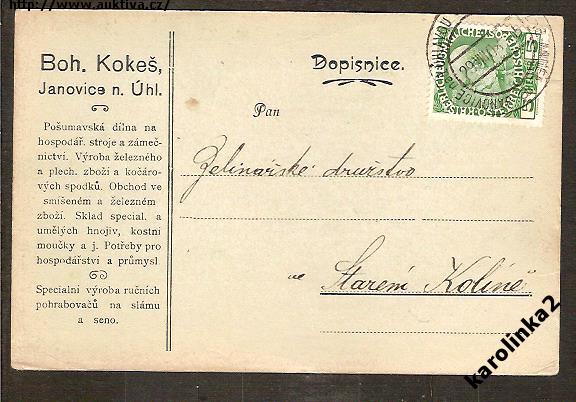 http://www.auktiva.cz/
Boh. Kokeš,
Janovice n. Úhl.
Pošumavská dílna na
hospodář. stroje a zámeč-
nictví. Výroba železného
a plech. zboží a kočáro-
vých spodků. Obchod ve
smíšeném a železném
zboží. Sklad special. a
umělých hnojiv, kostní
moučky a j. Potřeby pro
hospodářství a průmysl.
Specialní výroba ručních
pohrabovačů na slámu
a seno.
Dopisnice.
Pan
Zelinářské družstvo
ve Starém Kolíně
karolinka2